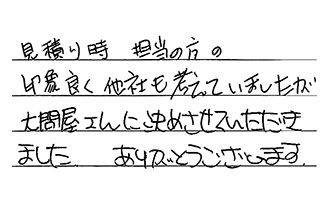 見積り時 担当の方の
印象良く他社も考えていましたが
大問屋さんに決めさせていただき
ました ありがとうございます.